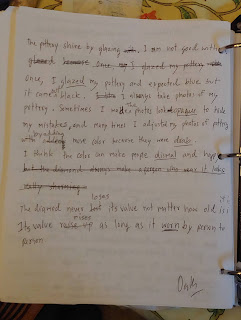 The pottery shine by glazing . I am not good with
glazed because once I glazed my pottery
once, I glazed my pottery and expected blue but
it came black. I always take photos of my
pottery. Sometimes I make the photos opaque to hide
my mistakes, and many times I adjust my photos of pottery
with adding more color because they were dense.
I think the color can make people dismal and happy
but the diamond always make a person
The diamond never loses its value not matter how old it is
Its value raises as long as it worn by person to
person